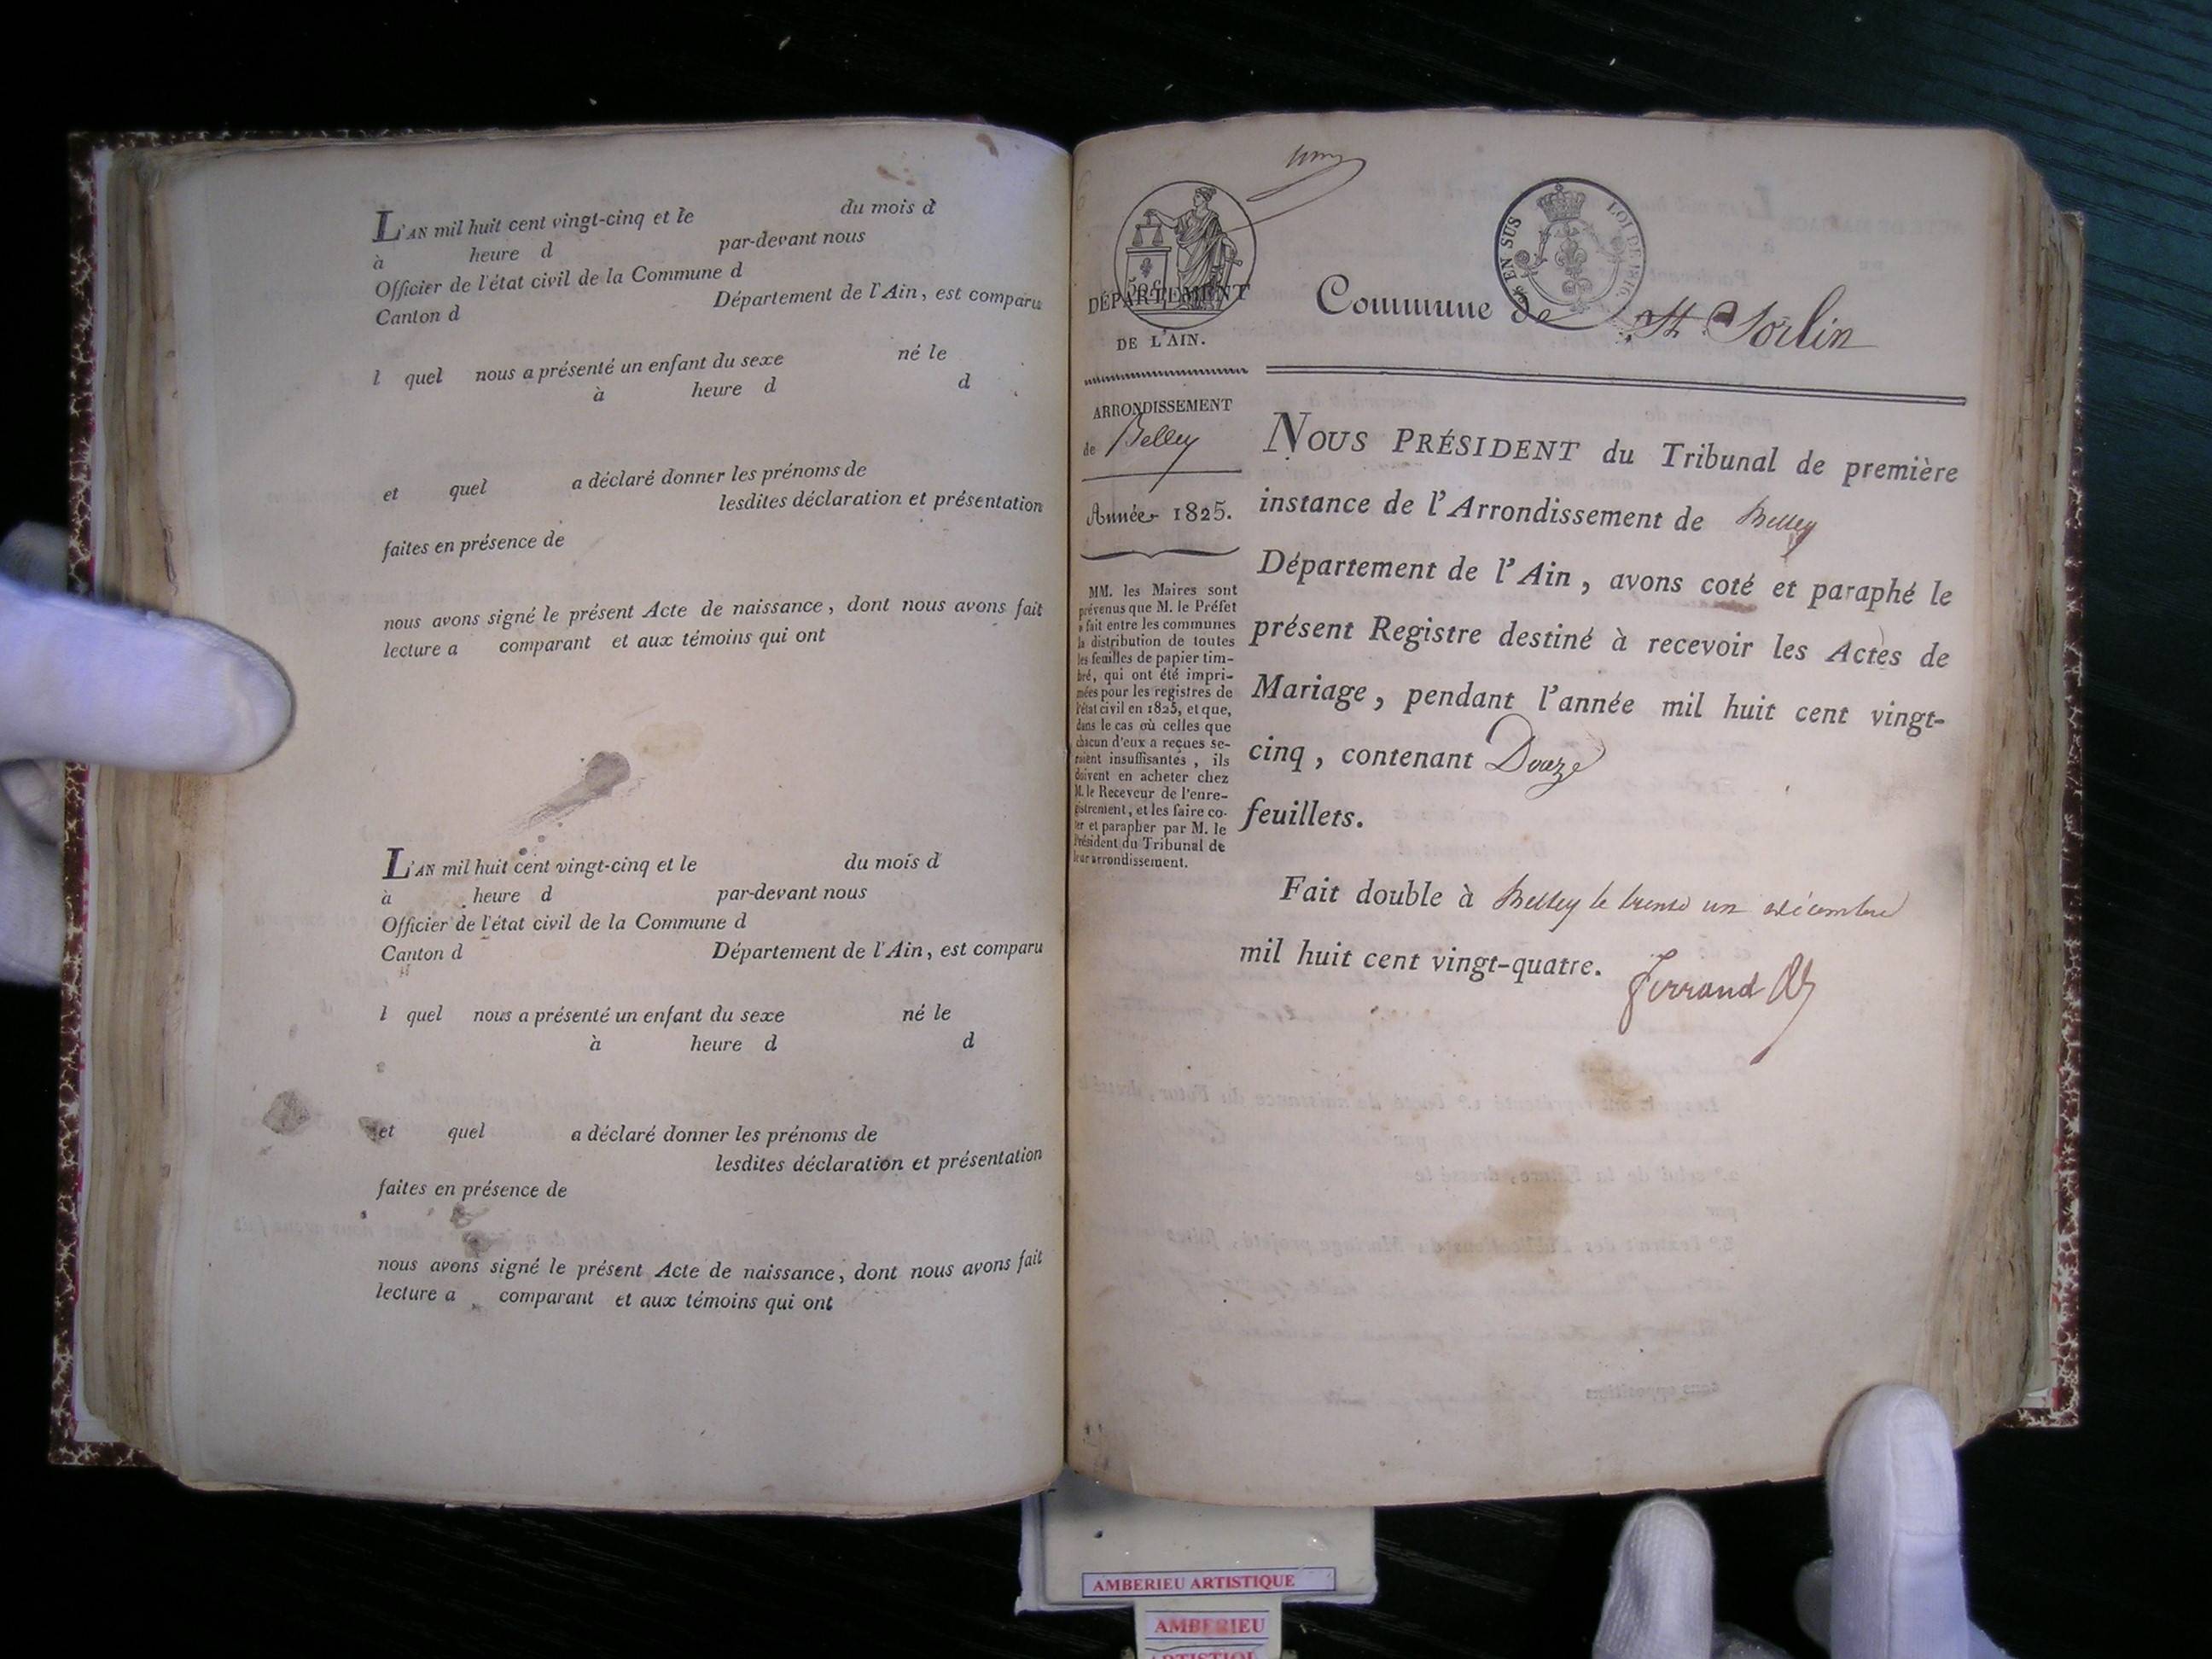 L'AN mil huit cent vingt-cinq et le du mois d
à heure d par-devant nous
Officier de l'état civil de la Commune d
Canton d Département de l'Ain, est comparu
l quel nous a présenté un enfant du sexe né le
à heure d d
et quel a déclaré donner les prénoms de
lesdites déclaration et présentation
faites en présence de
nous avons signé le présent Acte de naissance, dont nous avons fait
lecture a comparant et aux témoins qui ont
L'AN mil huit cent vingt-cinq et le du mois d
à heure d par-devant nous
Officier de l'état civil de la Commune d
Canton d Département de l'Ain, est comparu
l quel nous a présenté un enfant du sexe né le
à heure d d
et quel a déclaré donner les prénoms de
lesdites déclaration et présentation
faites en présence de
nous avons signé le présent Acte de naissance, dont nous avons fait
lecture a comparant et aux témoins qui ont
EN SUS LOI DE 1816.
DÉPARTEMENT
DE L'AIN.
Commune de St. Sorlin
ARRONDISSEMENT
de Belley
Année 1825.
MM. les Maires sont
prévenus que M. le Préfet
a fait entre les communes
la distribution de toutes
les feuilles de papier tim-
bré, qui ont été impri-
mées pour les registres de
l'état civil en 1825, et que,
dans le cas où celles que
chacun d'eux a reçues se-
raient insuffisantes, ils
doivent en acheter chez
M. le Receveur de l'enre-
gistrement, et les faire co-
ter et parapher par M. le
Président du Tribunal de
leur arrondissement.
NOUS PRÉSIDENT du Tribunal de première
instance de l'Arrondissement de Belley
Département de l'Ain, avons coté et paraphé le
présent Registre destiné à recevoir les Actes de
Mariage, pendant l'année mil huit cent vingt-
cinq, contenant Douze
feuillets.
Fait double à Belley le trente un décembre
mil huit cent vingt-quatre.
Ferrand
AMBERIEU ARTISTIQUE
AMBERIEU